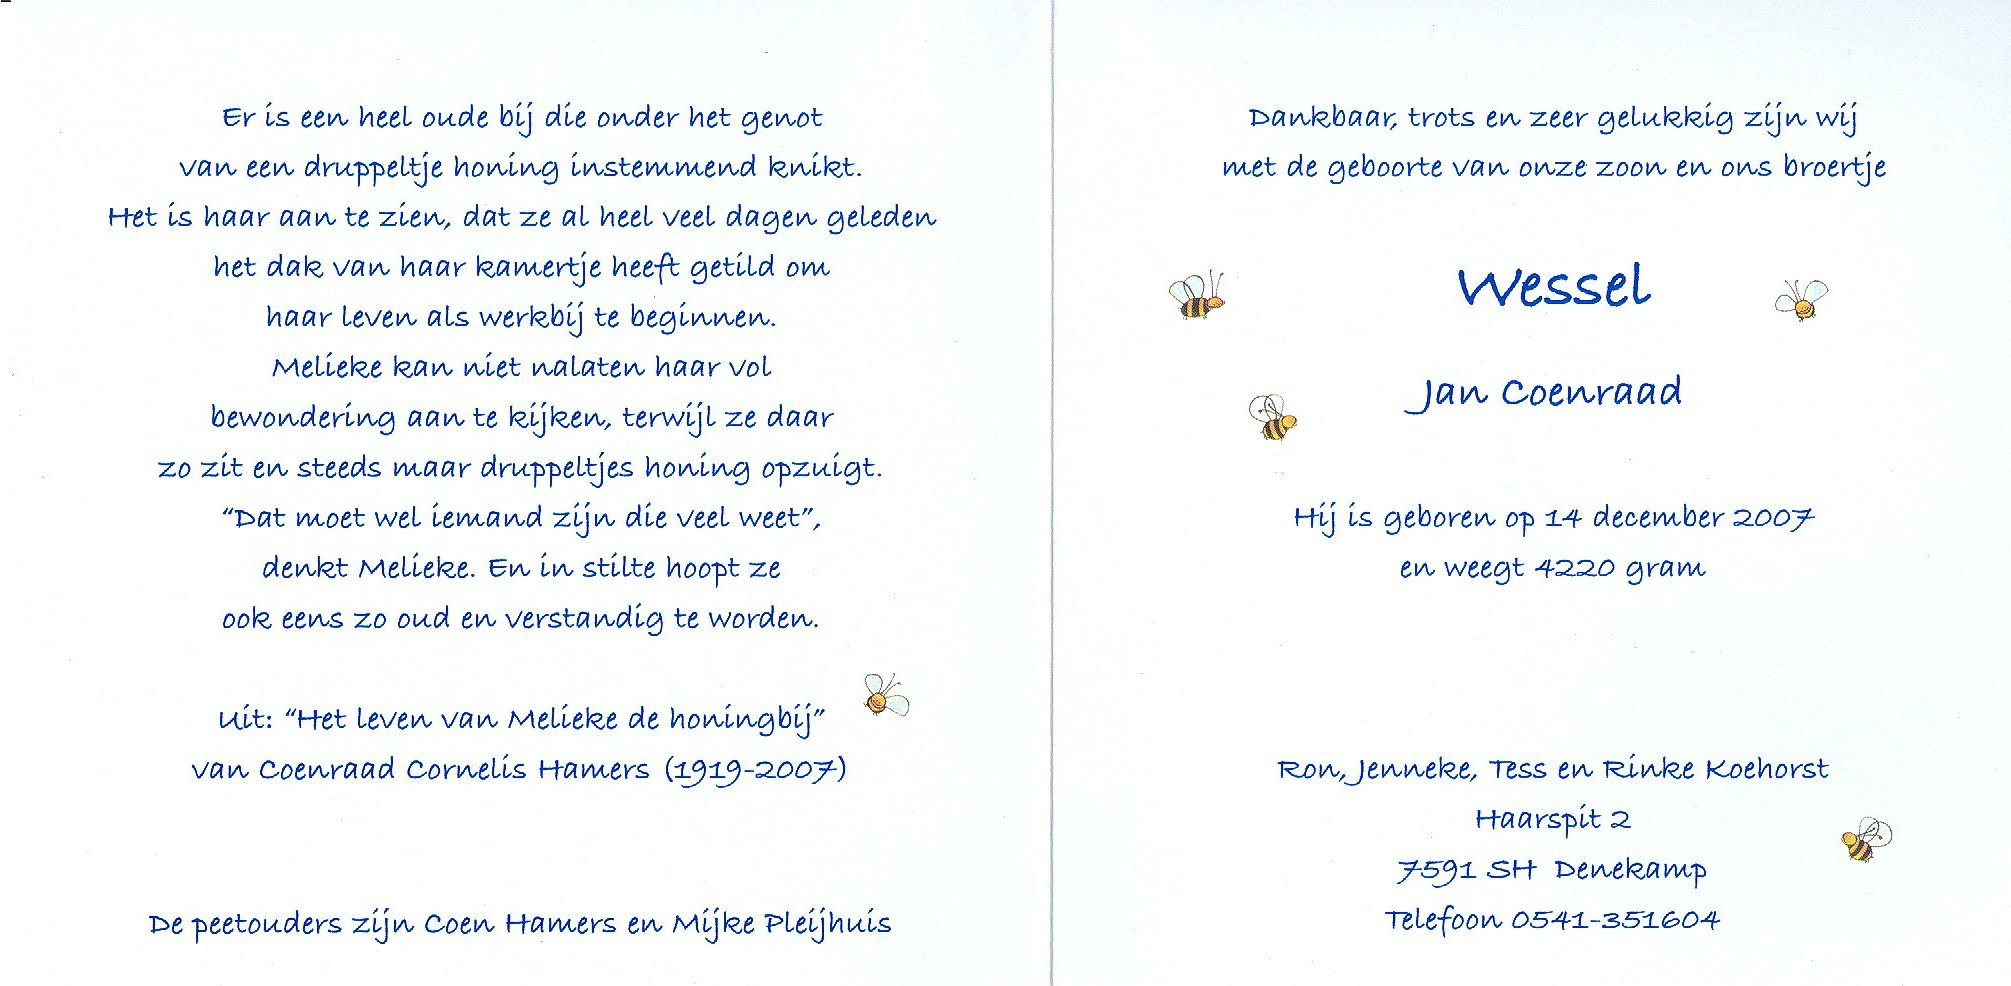 Er is een heel oude bij die onder het genot
van een druppeltje honing instemmend knikt.
Het is haar aan te zien, dat ze al heel veel dagen geleden
het dak van haar kamertje heeft getild om
haar leven als werkbij te beginnen.
Melieke kan niet nalaten haar vol
bewondering aan te kijken, terwijl ze daar
zo zit en steeds maar druppeltjes honing opzuigt.
“Dat moet wel iemand zijn die veel weet”,
denkt Melieke. En in stilte hoopt ze
ook eens zo oud en verstandig te worden.
Uit: “Het leven van Melieke de honingbij”
van Coenraad Cornelis Hamers (1919-2007)
De peetouders zijn Coen Hamers en Mijke Pleijhuis
Dankbaar, trots en zeer gelukkig zijn wij
met de geboorte van onze zoon en ons broertje
Wessel
Jan Coenraad
Hij is geboren op 14 december 2007
en weegt 4220 gram
Ron, Jenneke, Tess en Rinke Koehorst
Haarspit 2
7591 SH Denekamp
Telefoon 0541-351604